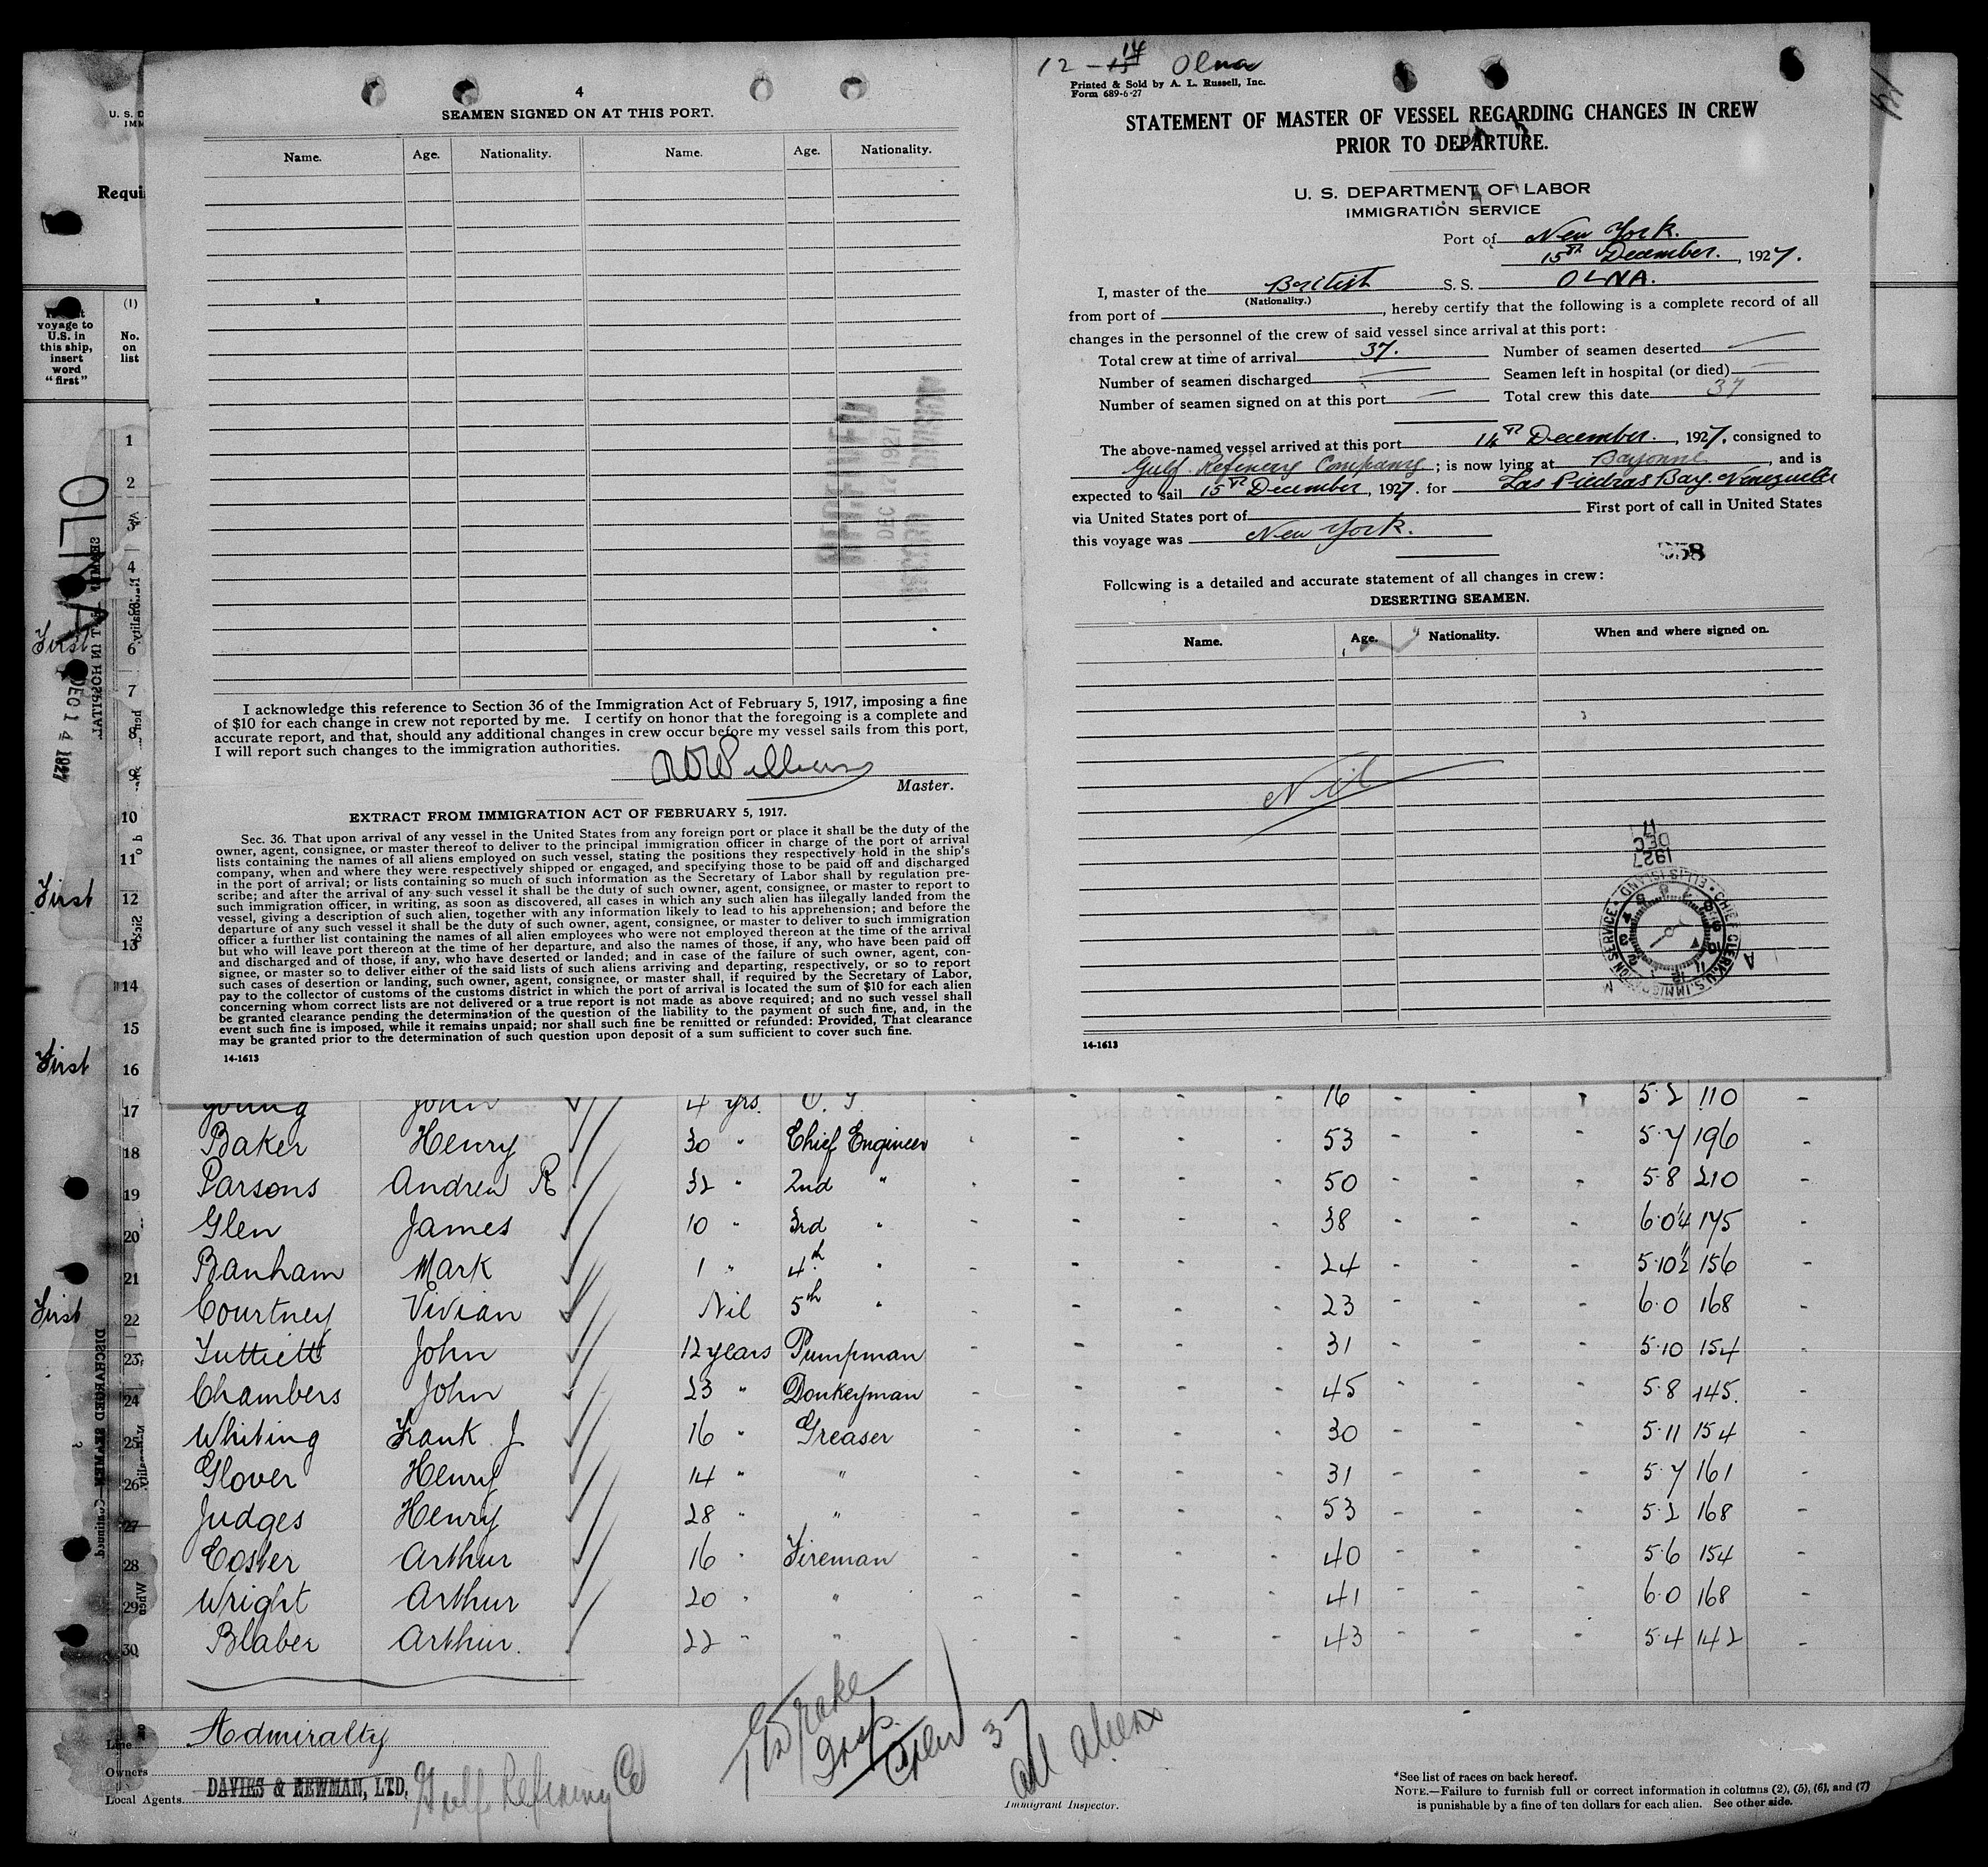 4
SEAMEN SIGNED ON AT THIS PORT.
Name. Age. Nationality. Name. Age. Nationality.
I acknowledge this reference to Section 36 of the Immigration Act of February 5, 1917, imposing a fine
of $10 for each change in crew not reported by me. I certify on honor that the foregoing is a complete and
accurate report, and that, should any additional changes in crew occur before my vessel sails from this port,
I will report such changes to the immigration authorities.
Master.
EXTRACT FROM IMMIGRATION ACT OF FEBRUARY 5, 1917.
Sec. 36. That upon arrival of any vessel in the United States from any foreign port or place it shall be the duty of the
owner, agent, consignee, or master thereof to deliver to the principal immigration officer in charge of the port of arrival
lists containing the names of all aliens employed on such vessel, stating the positions they respectively hold in the ship's
company, when and where they were respectively shipped or engaged, and specifying those to be paid off and discharged
in the port of arrival; or lists containing so much of such information as the Secretary of Labor shall by regulation pre-
scribe; and after the arrival of any such vessel it shall be the duty of such owner, agent, consignee, or master to report to
such immigration officer, in writing, as soon as discovered, all cases in which any such alien has illegally landed from the
vessel, giving a description of such alien, together with any information likely to lead to his apprehension; and before the
departure of any such vessel it shall be the duty of such owner, agent, consignee, or master to deliver to such immigration
officer a further list containing the names of all alien employees who were not employed thereon at the time of the arrival
but who will leave port thereon at the time of her departure, and also the names of those, if any, who have been paid off
and discharged and of those, if any, who have deserted or landed; and in case of the failure of such owner, agent, con-
signee, or master so to deliver either of the said lists of such aliens arriving and departing, respectively, or so to report
such cases of desertion or landing, such owner, agent, consignee, or master shall, if required by the Secretary of Labor,
pay to the collector of customs of the customs district in which the port of arrival is located the sum of $10 for each alien
concerning whom correct lists are not delivered or a true report is not made as above required; and no such vessel shall
be granted clearance pending the determination of the question of the liability to the payment of such fine, and, in the
event such fine is imposed, while it remains unpaid; nor shall such fine be remitted or refunded: Provided, That clearance
may be granted prior to the determination of such question upon deposit of a sum sufficient to cover such fine.
14-1613
12 - 14 Olna
Printed & Sold by A. L. Russell, Inc.
Form 689-6-27
STATEMENT OF MASTER OF VESSEL REGARDING CHANGES IN CREW
PRIOR TO DEPARTURE.
U. S. DEPARTMENT OF LABOR
IMMIGRATION SERVICE
Port of New York.
15th December. , 1927.
I, master of the British S. S. OLNA.
(Nationality.)
from port of , hereby certify that the following is a complete record of all
changes in the personnel of the crew of said vessel since arrival at this port:
Total crew at time of arrival 37. Number of seamen deserted
Number of seamen discharged Seamen left in hospital (or died)
Number of seamen signed on at this port Total crew this date 37
The above-named vessel arrived at this port 14th December. , 1927, consigned to
Gulf Refining Company ; is now lying at Bayonne , and is
expected to sail 15th December , 1927. for Las Piedras Bay. Venezuella
via United States port of First port of call in United States
this voyage was New York.
Following is a detailed and accurate statement of all changes in crew:
DESERTING SEAMEN.
Name. Age. Nationality. When and where signed on.
Nil
1927
DEC
17
CHIEF CLERK, U.S. IMMIGRATION SERVICE • ELLIS ISLAND
14-1613
Requi
(1)
voyage to
U.S. in
this ship,
insert
word
"first"
No.
on
list
OLNA
DEC 14 1927
1
2
3
4
First 6
7
8
9
10
11
First 12
13
14
15
First 16
17 Young John 4 yrs. O. S. 16 5·2 110
18 Baker Henry 30 " Chief Engineer 53 5·7 196
19 Parsons Andrew R 32 " 2nd " 50 5·8 210
20 Glen James 10 " 3rd " 38 6·0¼ 175
21 Banham Mark 1 " 4th " 24 5·10½ 156
First 22 Courtney Vivian Nil 5th " 23 6·0 168
23 Tuttiett John 12 years Pumpman 31 5·10 154
24 Chambers John 23 " Donkeyman 45 5·8 145.
25 Whiting Frank J 16 " Greaser 30 5·11 154
26 Glover Henry 14 " " 31 5·7 161
27 Judges Henry 28 " " 53 5·2 168
28 Coster Arthur 16 " Fireman 40 5·6 154
29 Wright Arthur 20 " " 41 6·0 168
30 Blaber Arthur. 22 " " 43 5·4 142
Line Admiralty
Owners
Local Agents. DAVIES & NEWMAN, LTD. Gulf Refining Co
37
all aliens
Immigrant Inspector.
*See list of races on back hereof.
NOTE.—Failure to furnish full or correct information in columns (2), (5), (6), and (7)
is punishable by a fine of ten dollars for each alien. See other side.